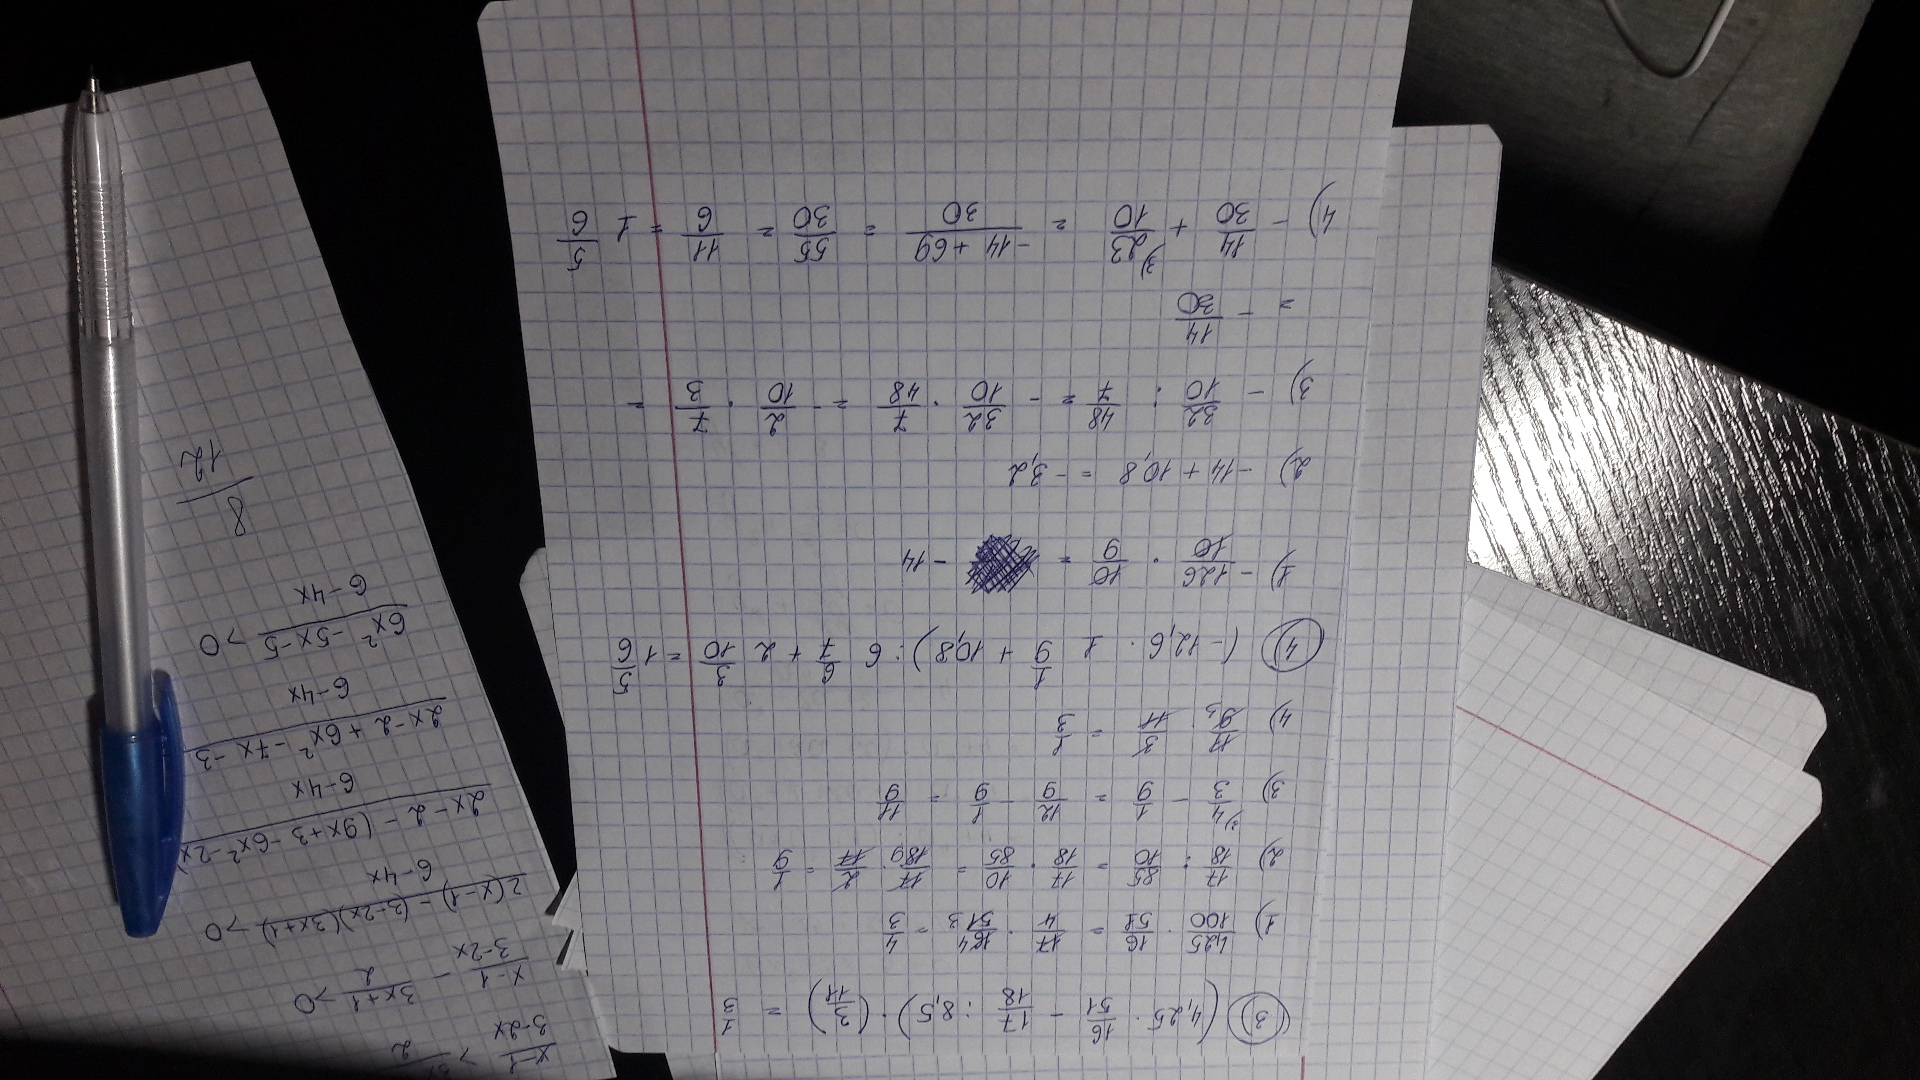 ③ (4,25 · 16/51 - 17/18 : 8,5) · (3/11) = 1/3
1) 425/100 · 16/51 = 17/4 · 16 4/51 3 = 4/3
2) 17/18 : 85/10 = 17/18 · 10/85 = 17/18 9 · 2/17 = 1/9
3) 4/3 3) - 1/9 = 12/9 - 1/9 = 11/9
4) 11/9 3 · 3/11 = 1/3
④ (-12,6 · 1 1/9 + 10,8) : 6 6/7 + 2 3/10 = 1 5/6
1) - 126/10 · 10/9 = - 14
2) -14 + 10,8 = -3,2
3) - 32/10 : 48/7 = - 32/10 · 7/48 = - 2/10 · 7/3 =
= - 14/30
4) - 14/30 + 23/10 3) = -14+69/30 = 55/30 = 11/6 = 1 5/6
x-1/3-2x > /2
x-1/3-2x - 3x+1/2 > 0
2(x-1)-(3-2x)(3x+1)/6-4x > 0
2x-2-(9x+3-6x²-2x)/6-4x
2x-2+6x²-7x-3/6-4x
6x²-5x-5/6-4x > 0
8/12